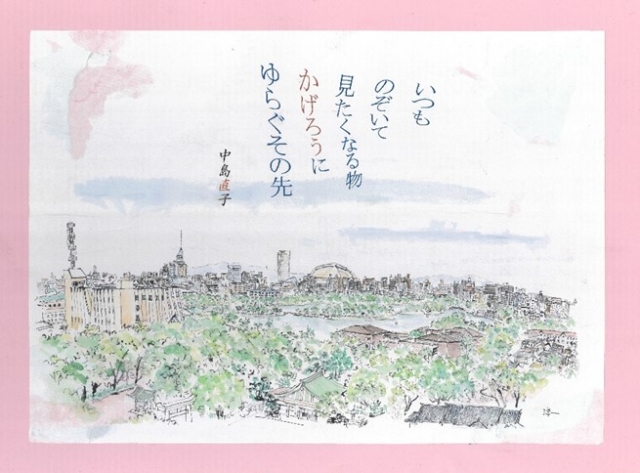 いつも
のぞいて
見たくなる物
かげろうに
ゆらぐその先
中島直子